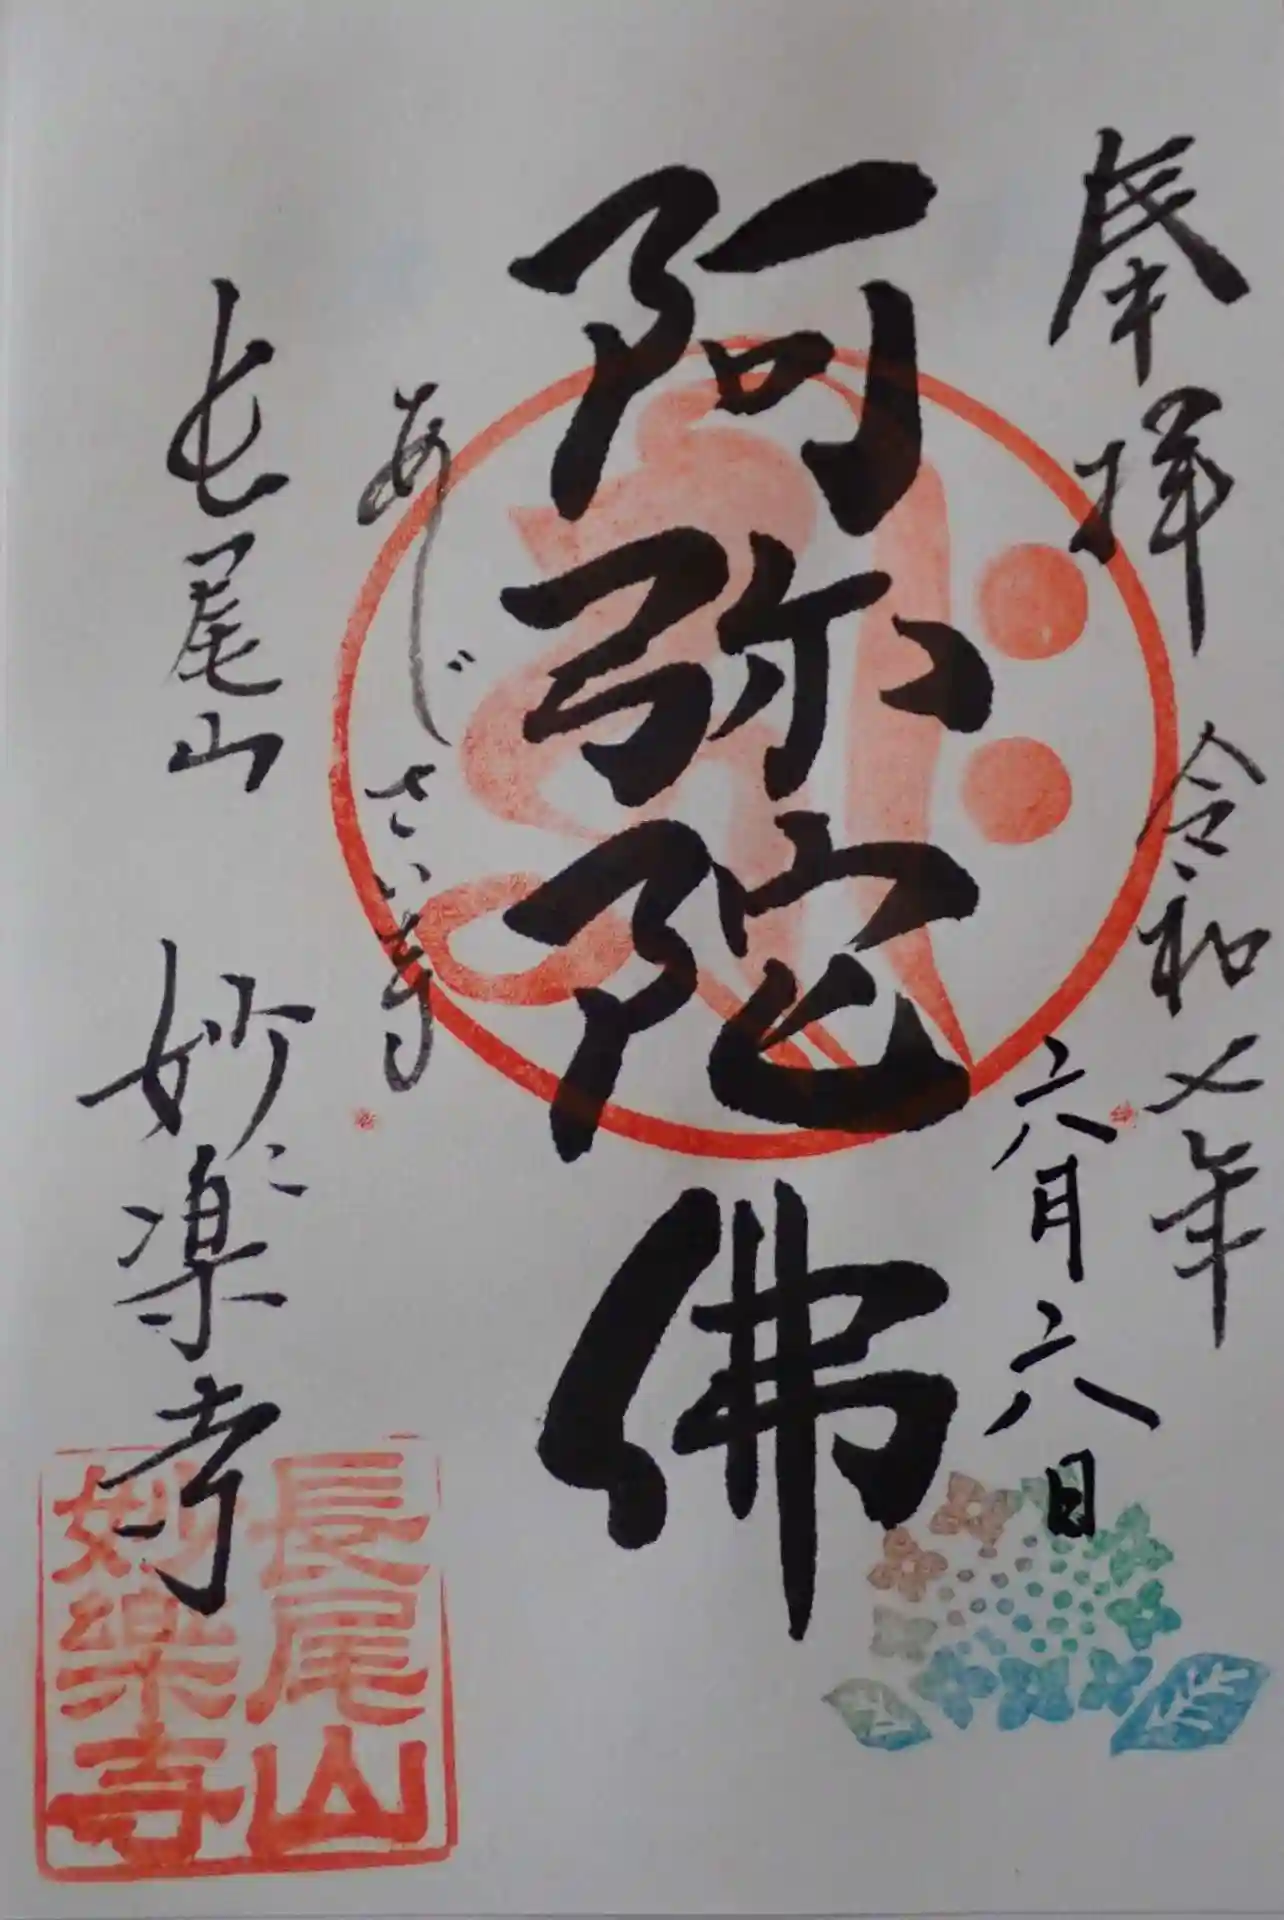 奉拝
令和七年
六月六日
阿弥陀佛
あじさい寺
長尾山 妙楽寺
長尾山
妙樂寺